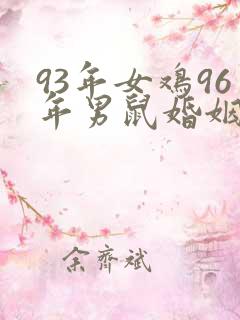 93年女鸡96
年男鼠婚姻
余齐斌